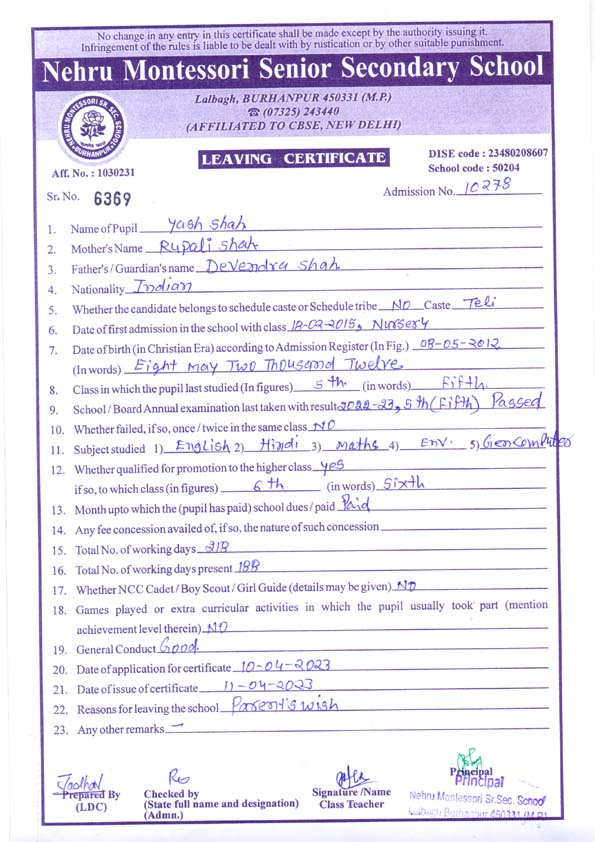 No change in any entry in this certificate shall be made except by the authority issuing it.
Infringement of the rules is liable to be dealt with by rustication or by other suitable punishment.
Nehru Montessori Senior Secondary School
Lalbagh, BURHANPUR 450331 (M.P.)
☎ (07325) 243440
(AFFILIATED TO CBSE, NEW DELHI)
NEHRU MONTESSORI SR. SEC. SCHOOL
BURHANPUR
LEAVING CERTIFICATE
DISE code : 23480208607
School code : 50204
Aff. No. : 1030231
Sr. No. 6369
Admission No. 10278
1. Name of Pupil Yash Shah
2. Mother's Name Rupali Shah
3. Father's / Guardian's name Devendra Shah
4. Nationality Indian
5. Whether the candidate belongs to schedule caste or Schedule tribe NO Caste Teli
6. Date of first admission in the school with class 18-02-2015, Nursery
7. Date of birth (in Christian Era) according to Admission Register (In Fig.) 08-05-2012
(In words) Eight may Two Thousand Twelve
8. Class in which the pupil last studied (In figures) 5th. (in words) Fifth.
9. School / Board Annual examination last taken with result 2022-23, 5th (Fifth) Passed
10. Whether failed, if so, once / twice in the same class NO
11. Subject studied 1) English 2) Hindi 3) maths 4) Env. 5) Gencomputer
12. Whether qualified for promotion to the higher class yes
if so, to which class (in figures) 6th (in words) Sixth
13. Month upto which the (pupil has paid) school dues / paid Paid
14. Any fee concession availed of, if so, the nature of such concession
15. Total No. of working days 218
16. Total No. of working days present 188
17. Whether NCC Cadet / Boy Scout / Girl Guide (details may be given) NO
18. Games played or extra curricular activities in which the pupil usually took part (mention
achievement level therein) NO
19. General Conduct Good.
20. Date of application for certificate 10-04-2023
21. Date of issue of certificate 11-04-2023
22. Reasons for leaving the school Parent's wish
23. Any other remarks —
Jadhav
Prepared By
(LDC)
Checked by
(State full name and designation)
(Admn.)
Signature /Name
Class Teacher
Principal
Principal
Nehru Montessori Sr.Sec. School
Lalbagh Burhanpur 450331 (M.P.)